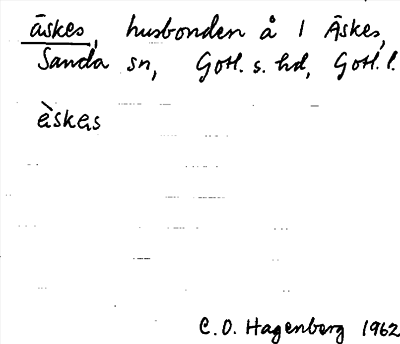 äskes, husbonden å 1 Äskes,
Sanda sn, Gotl. s. hd, Gotl. l.
èskes
C. O. Hagenberg 1962